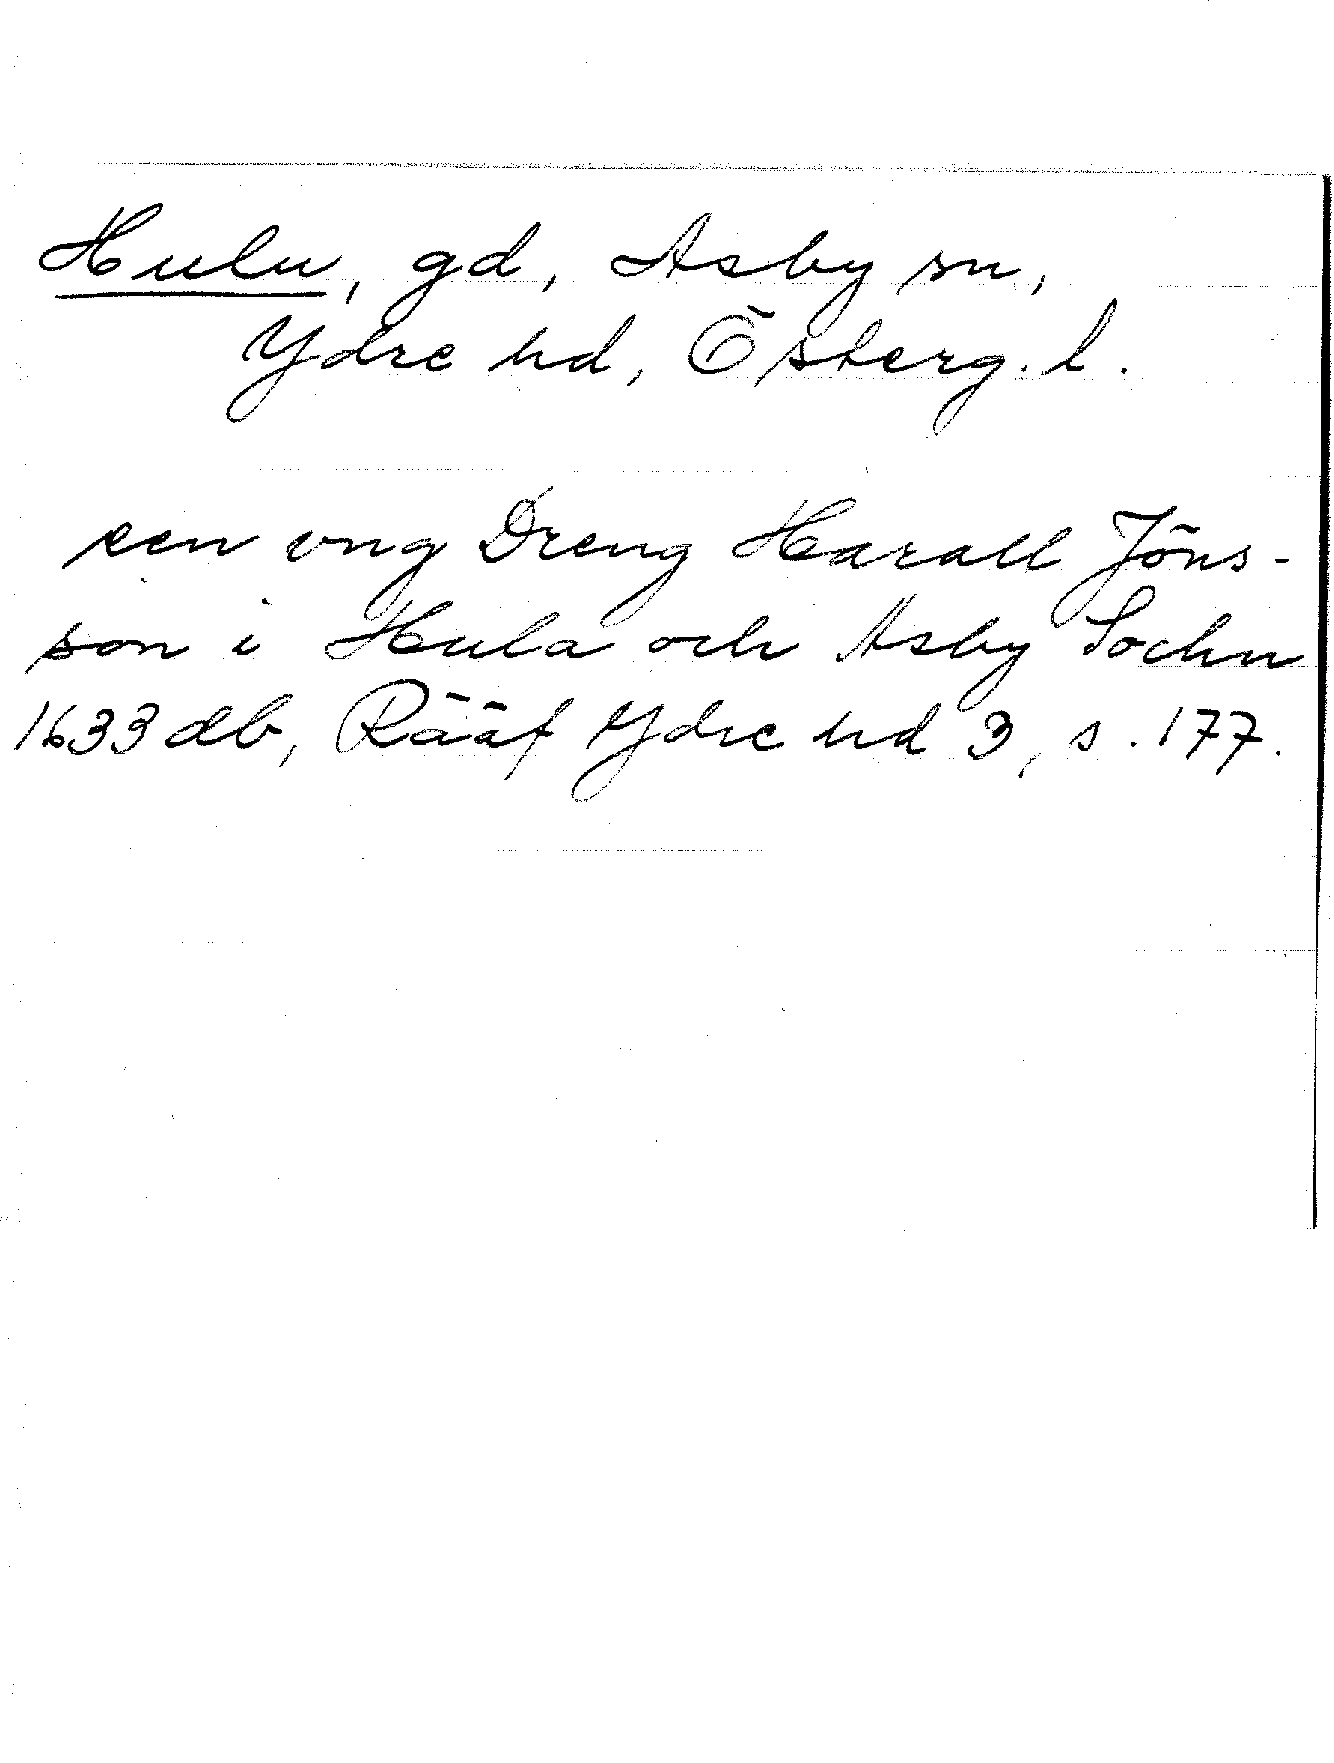 Hulu, gd, Asby sn,
Ydre hd, Österg. l.
een vng Dreng Harall Jöns-
son i Hula och Asby Sochn
1633 db, Rääf Ydre hd 3, s. 177.